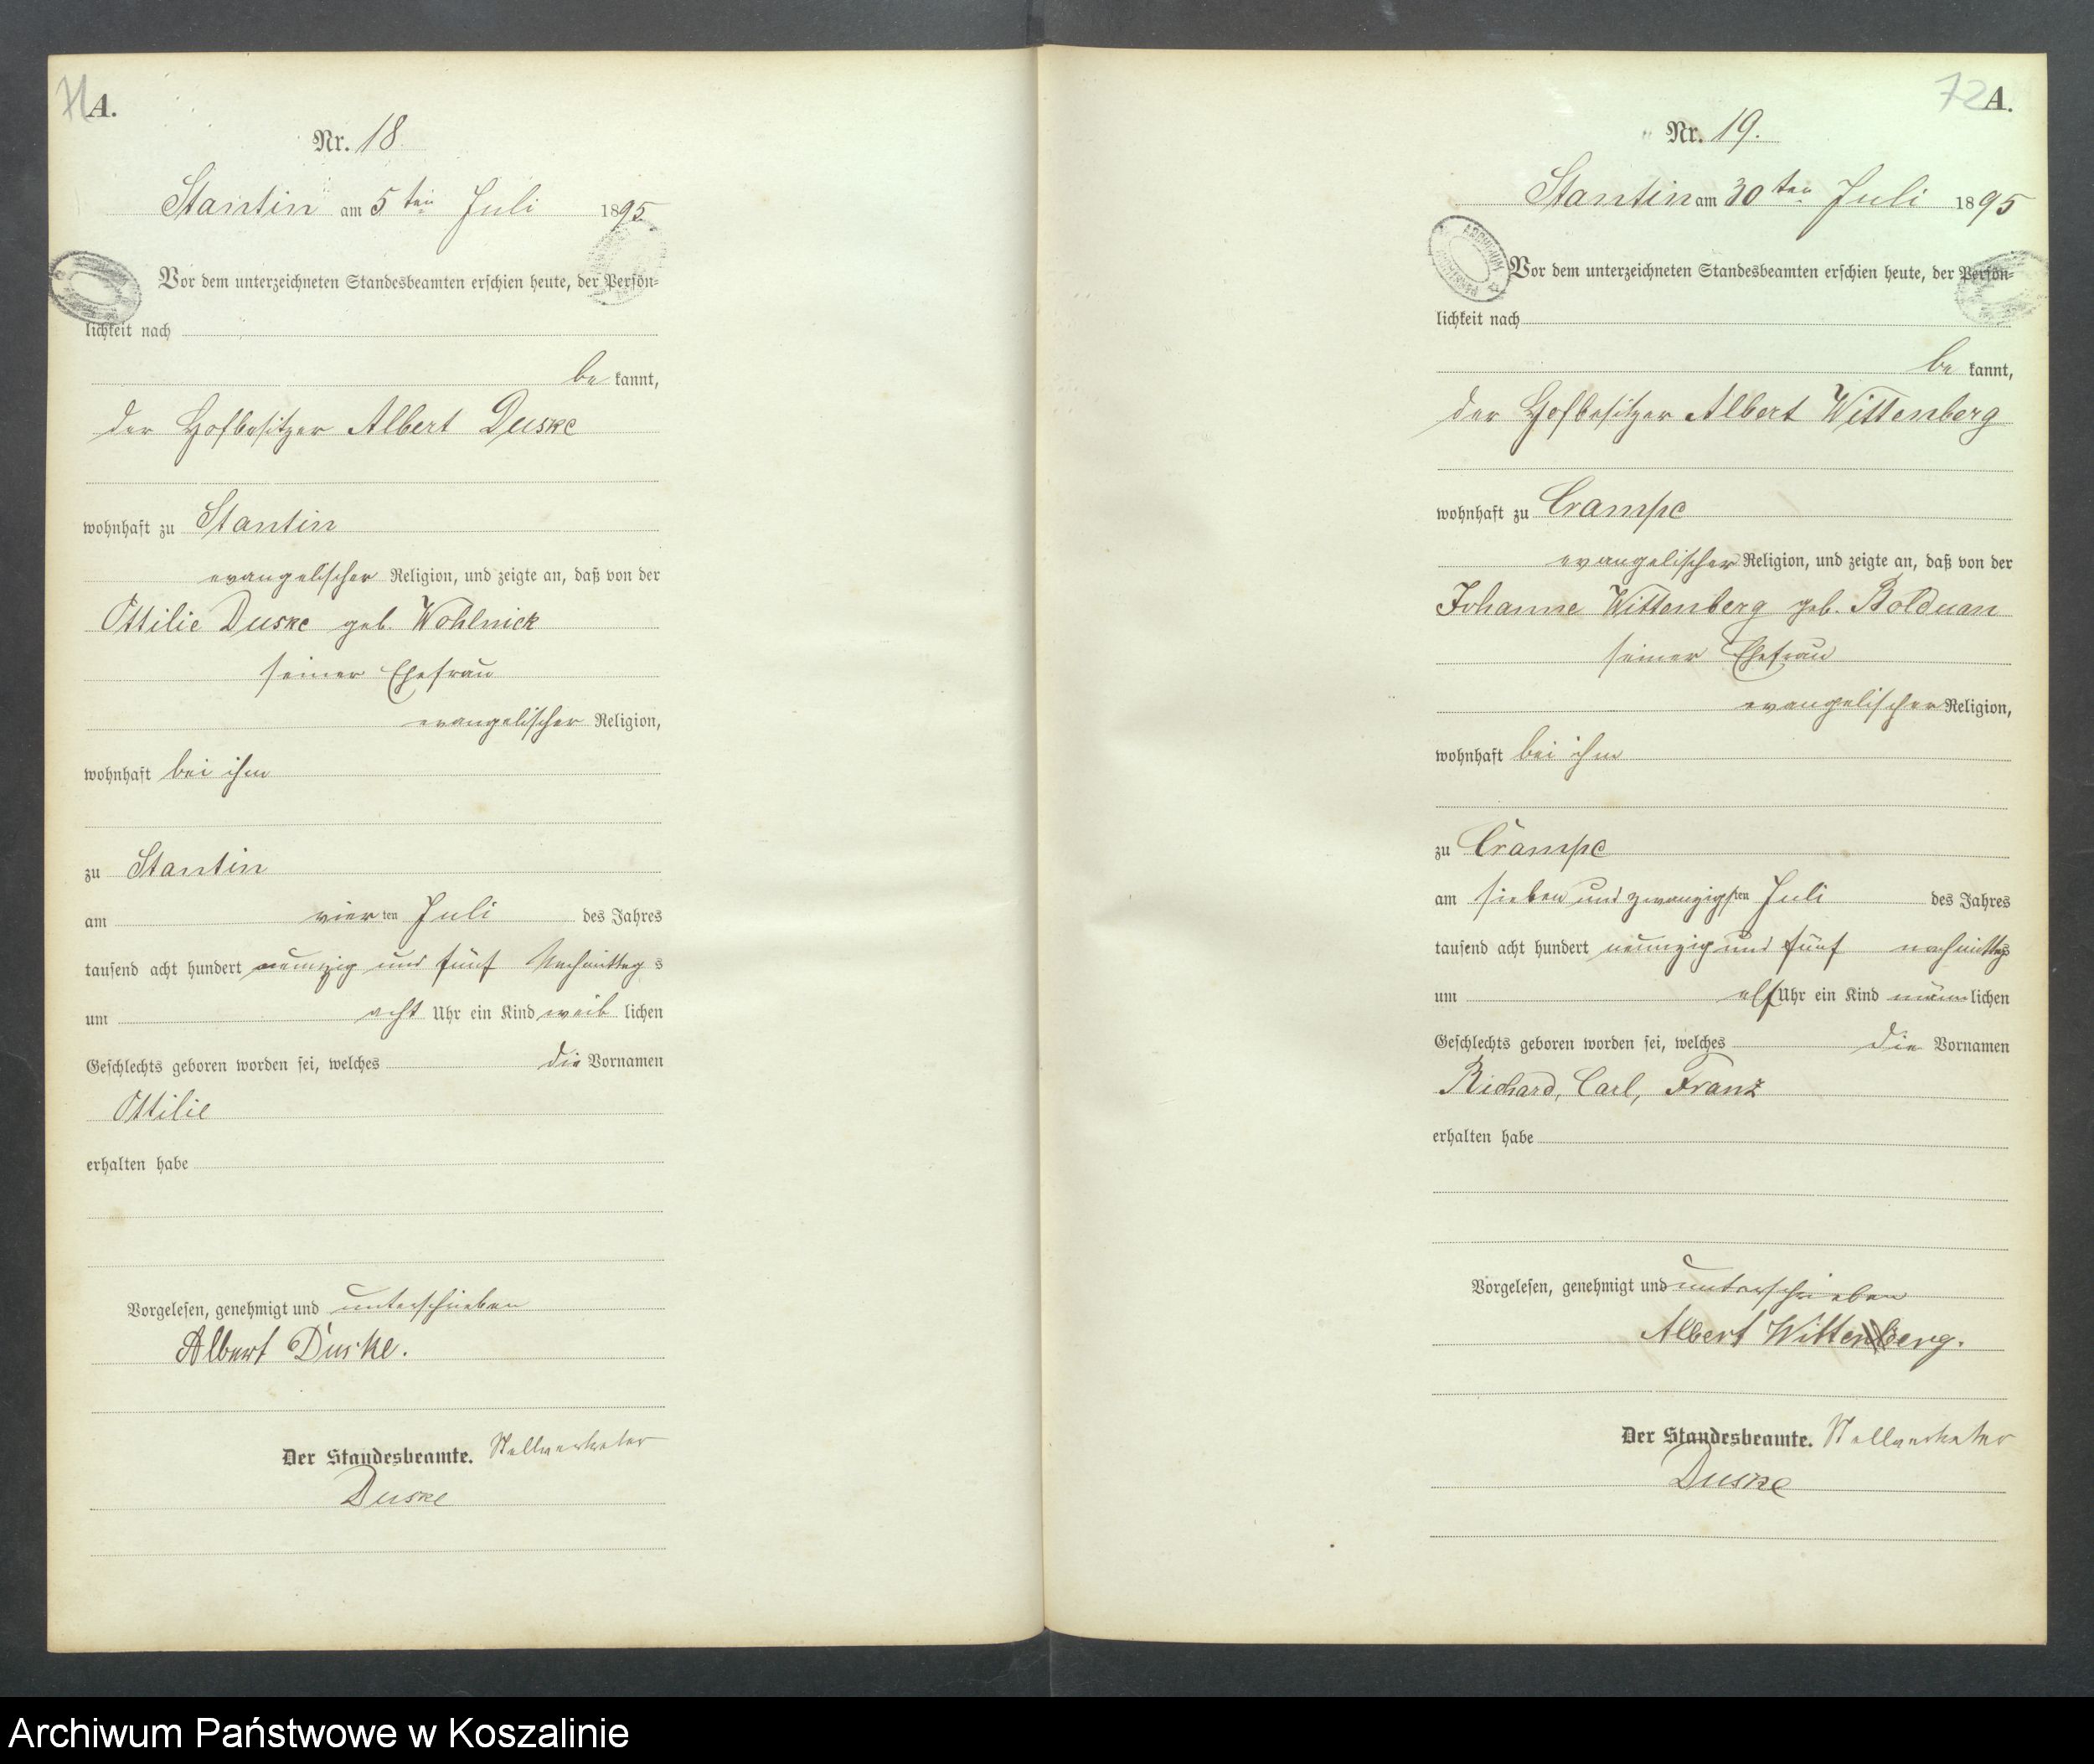 71 A.
Nr. 18
Stantin am 5ten Juli 1895
Vor dem unterzeichneten Standesbeamten erschien heute, der Persön-
lichkeit nach
be kannt,
der Hofbesitzer Albert Duske
wohnhaft zu Stantin
evangelischer Religion, und zeigte an, daß von der
Ottilie Duske geb. Wohlnick
seiner Ehefrau
evangelischer Religion,
wohnhaft bei ihm
zu Stantin
am vierten Juli des Jahres
tausend acht hundert neunzig und fünf Nachmittags
um acht Uhr ein Kind weiblichen
Geschlechts geboren worden sei, welches die Vornamen
Ottilie
erhalten habe
Vorgelesen, genehmigt und unterschrieben
Albert Duske.
Der Standesbeamte. Stellvertreter
Duske
72 A.
Nr. 19.
Stantin am 30ten Juli 1895
ARCHIWUM
Vor dem unterzeichneten Standesbeamten erschien heute, der Persön-
lichkeit nach
be kannt,
der Hofbesitzer Albert Wittenberg
wohnhaft zu Crampe
evangelischer Religion, und zeigte an, daß von der
Johanne Wittenberg geb. Bolduan
seiner Ehefrau
evangelischer Religion,
wohnhaft bei ihm
zu Crampe
am sieben und zwanzigsten Juli des Jahres
tausend acht hundert neunzig und fünf nachmittags
um elf Uhr ein Kind männlichen
Geschlechts geboren worden sei, welches die Vornamen
Richard, Carl, Franz
erhalten habe
Vorgelesen, genehmigt und unterschrieben
Albert Wittenberg.
Der Standesbeamte. Stellvertreter
Duske
Archiwum Państwowe w Koszalinie